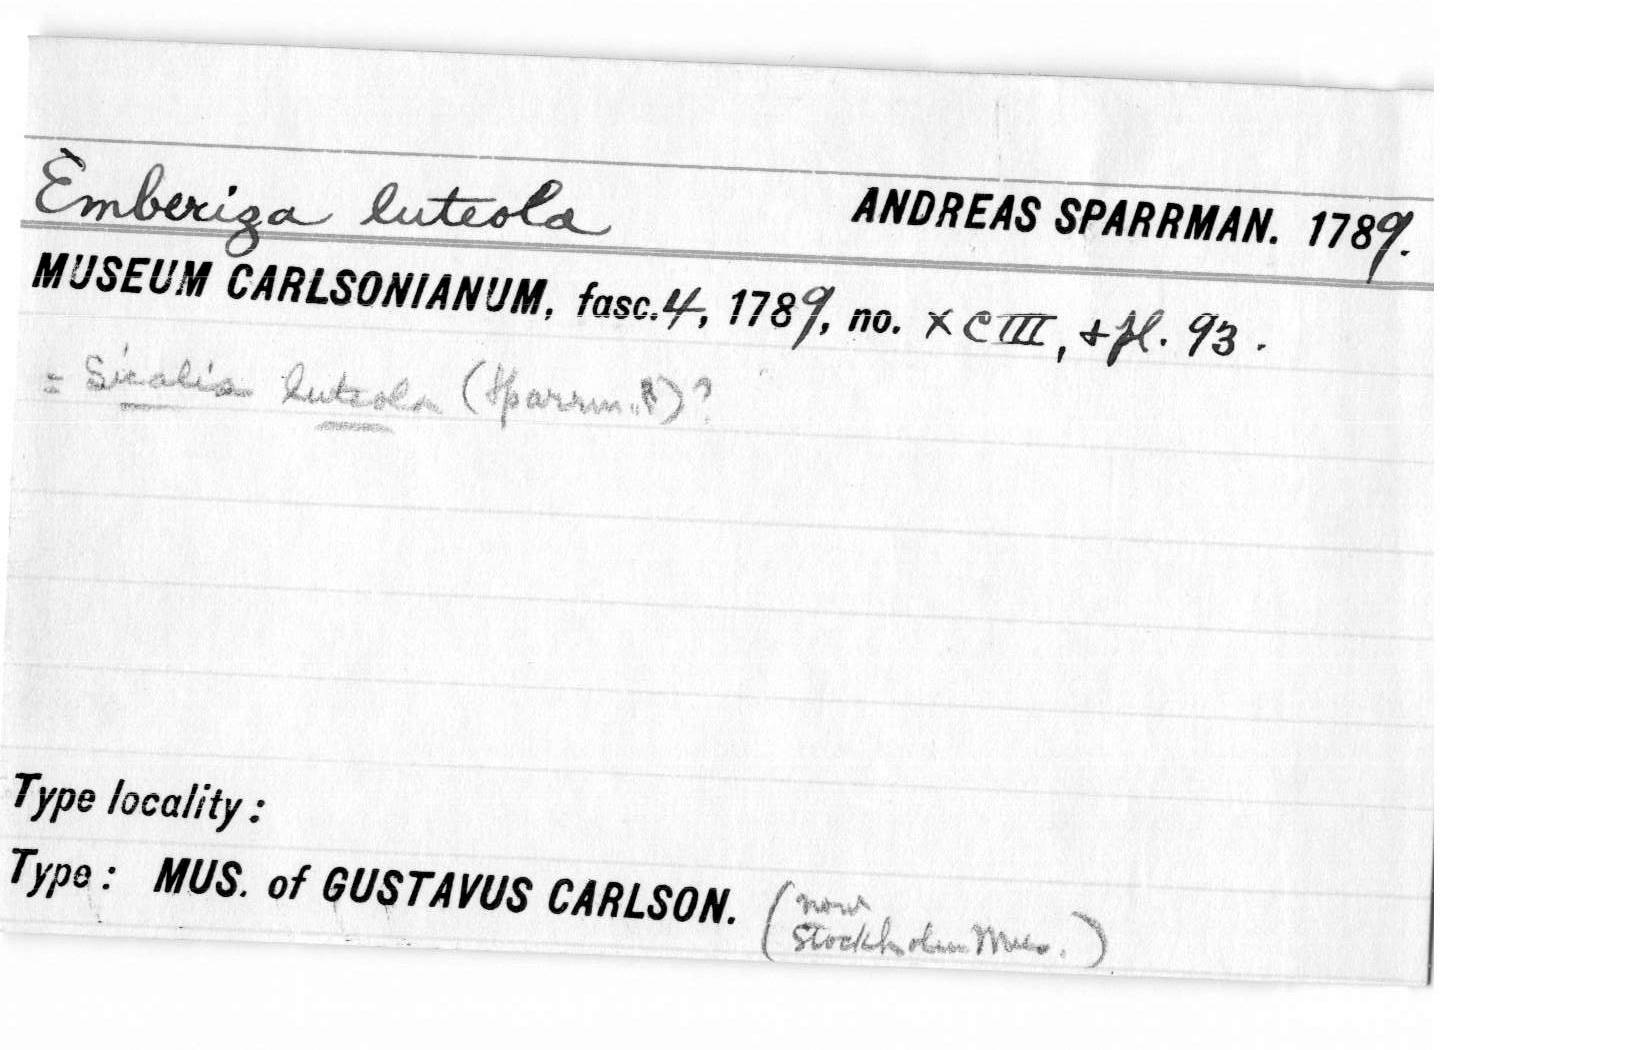 Emberiza luteola ANDREAS SPARRMAN. 1789.
MUSEUM CARLSONIANUM, fasc. 4, 1789, no. XCIII, + pl. 93.
= Sicalis luteola (Sparrm.)?
Type locality:
Type: MUS. of GUSTAVUS CARLSON. (now
Stockholm Mus.)